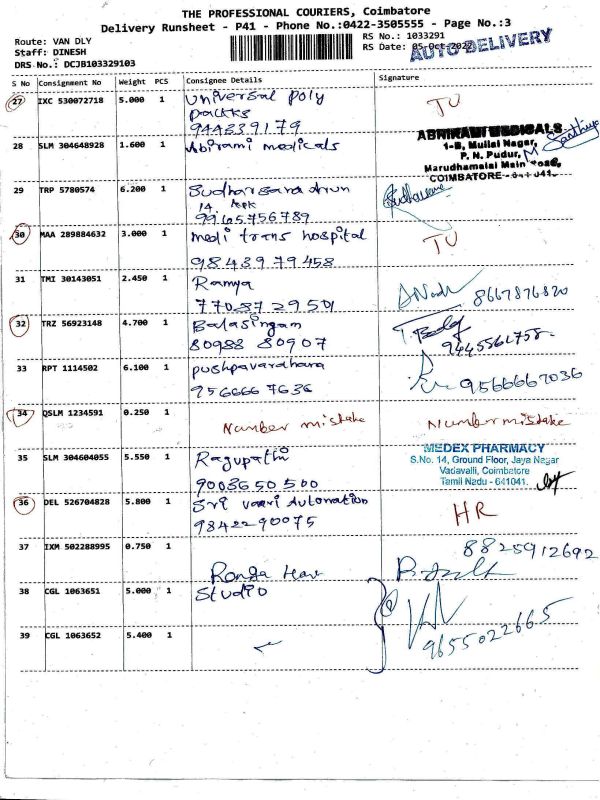 THE PROFESSIONAL COURIERS, Coimbatore
Delivery Runsheet - P41 - Phone No.:0422-3505555 - Page No.:3
Route: VAN DLY
Staff: DINESH
DRS No.: DCJB103329103
RS No.: 1033291
RS Date: 05-Oct-2022
AUTO DELIVERY
S No Consignment No Weight PCS Consignee Details Signature
27 IXC 530072718 5.000 1 Universal poly
packks
944239179
TU
28 SLM 304648928 1.600 1 Abirami medicals
ABHIRAMI MEDICALS
1-B, Mullai Nagar,
P. N. Pudur,
Marudhamalai Main Road,
COIMBATORE - 641 041.
29 TRP 5780574 6.200 1 Sudharsara drun
14,
99405756789
30 MAA 289884632 3.000 1 medi trans hospital
98439 79458
TU
31 TMI 30143051 2.450 1 Ramya
77087 29501
8667876820
32 TRZ 56923148 4.700 1 Balasingam
80988 80907
9445561758
33 RPT 1114502 6.100 1 pushpavardhara
956666 7636
9566667036
34 QSLM 1234591 0.250 1 Number mistake Number mistake
35 SLM 304604055 5.550 1 Ragupathi
9003650 500
MEDEX PHARMACY
S.No. 14, Ground Floor, Jaya Nagar
Vadavalli, Coimbatore
Tamil Nadu - 641041.
36 DEL 526704828 5.800 1 Sri vaari Automation
98422 90075
HR
37 IXM 502288995 0.750 1
8825912692
38 CGL 1063651 5.000 1 Studio
39 CGL 1063652 5.400 1
9655022665